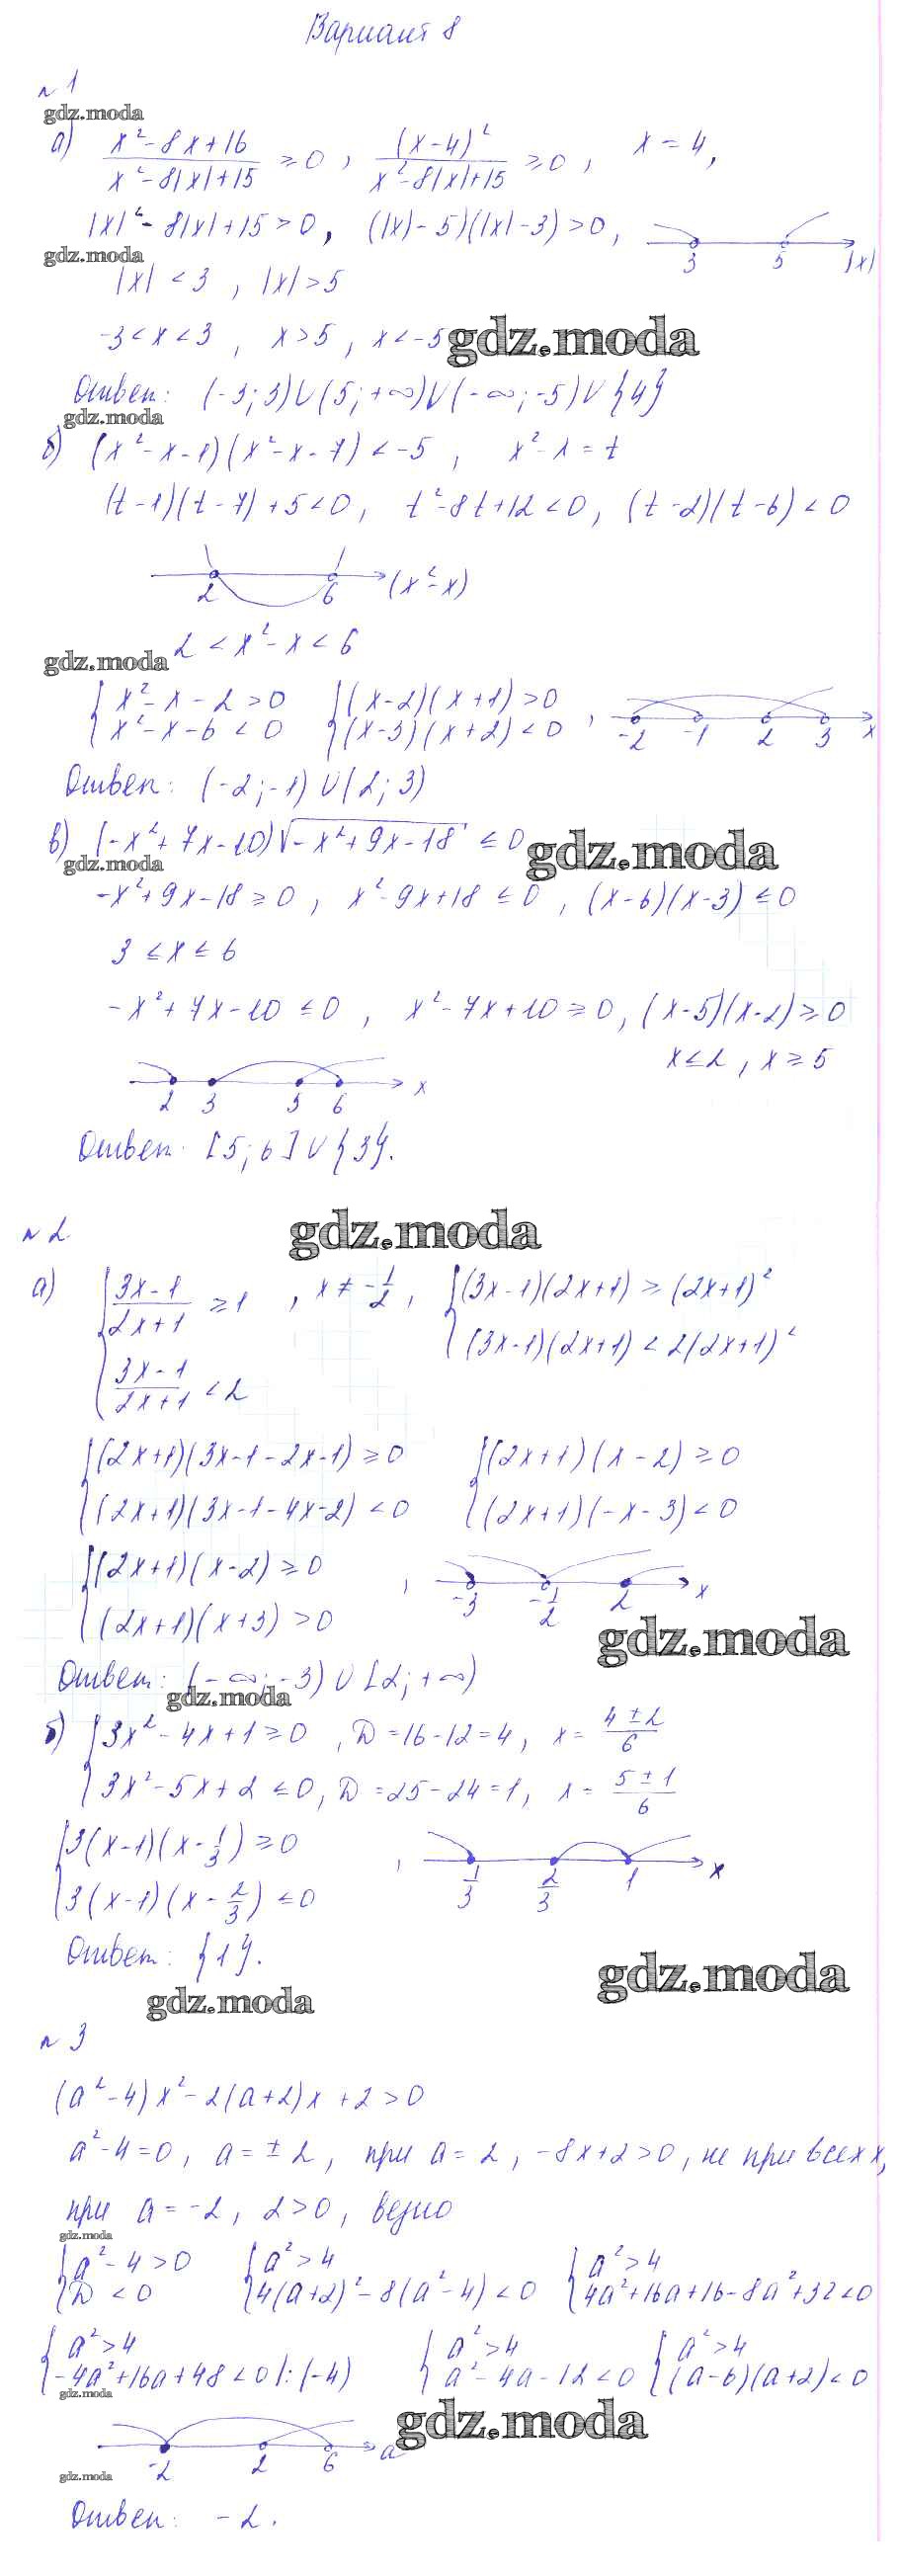 Вариант 8
№ 1
gdz.moda
а) (x² - 8x + 16)/(x² - 8|x| + 15) ≥ 0 , (x - 4)²/(x² - 8|x| + 15) ≥ 0 , x = 4,
|x|² - 8|x| + 15 > 0, (|x| - 5)(|x| - 3) > 0, 3 5 |x|
gdz.moda
|x| < 3 , |x| > 5
-3 < x < 3 , x > 5 , x < -5 gdz.moda
Ответ: (-3; 3) ∪ (5; +∞) ∪ (-∞; -5) ∪ {4}
gdz.moda
б) (x² - x - 1)(x² - x - 7) < -5 , x² - x = t
(t - 1)(t - 7) + 5 < 0, t² - 8t + 12 < 0, (t - 2)(t - 6) < 0
2 6 (x² - x)
gdz.moda 2 < x² - x < 6
{ x² - x - 2 > 0 { (x - 2)(x + 1) > 0
{ x² - x - 6 < 0 { (x - 3)(x + 2) < 0 , -2 -1 2 3 x
Ответ: (-2; -1) ∪ (2; 3)
в) (-x² + 7x - 10)√(-x² + 9x - 18) ≤ 0 gdz.moda
gdz.moda
-x² + 9x - 18 ≥ 0 , x² - 9x + 18 ≤ 0 , (x - 6)(x - 3) ≤ 0
3 ≤ x ≤ 6
-x² + 7x - 10 ≤ 0 , x² - 7x + 10 ≥ 0, (x - 5)(x - 2) ≥ 0
x ≤ 2 , x ≥ 5
2 3 5 6 x
Ответ: [5; 6] ∪ {3}.
№ 2. gdz.moda
а) { (3x - 1)/(2x + 1) ≥ 1 , x ≠ -1/2 , { (3x - 1)(2x + 1) ≥ (2x + 1)²
{ (3x - 1)/(2x + 1) < 2 { (3x - 1)(2x + 1) < 2(2x + 1)²
{ (2x + 1)(3x - 1 - 2x - 1) ≥ 0 { (2x + 1)(x - 2) ≥ 0
{ (2x + 1)(3x - 1 - 4x - 2) < 0 { (2x + 1)(-x - 3) < 0
{ (2x + 1)(x - 2) ≥ 0 , -3 -1/2 2 x
{ (2x + 1)(x + 3) > 0
gdz.moda
Ответ: (-∞; -3) ∪ [2; +∞)
gdz.moda
б) { 3x² - 4x + 1 ≥ 0 , D = 16 - 12 = 4, x = (4 ± 2)/6
{ 3x² - 5x + 2 ≤ 0, D = 25 - 24 = 1, x = (5 ± 1)/6
{ 3(x - 1)(x - 1/3) ≥ 0 , 1/3 2/3 1 x
{ 3(x - 1)(x - 2/3) ≤ 0
Ответ: {1}.
gdz.moda
gdz.moda
№ 3
(a² - 4)x² - 2(a + 2)x + 2 > 0
a² - 4 = 0, a = ± 2, при a = 2, -8x + 2 > 0, не при всех x,
при a = -2, 2 > 0, верно
gdz.moda
{ a² - 4 > 0 { a² > 4 { a² > 4
{ D < 0 { 4(a + 2)² - 8(a² - 4) < 0 { 4a² + 16a + 16 - 8a² + 32 < 0
{ a² > 4 { a² > 4 { a² > 4
{ -4a² + 16a + 48 < 0 |: (-4) { a² - 4a - 12 < 0 { (a - 6)(a + 2) < 0
gdz.moda
gdz.moda
-2 2 6 a
gdz.moda
Ответ: -2.